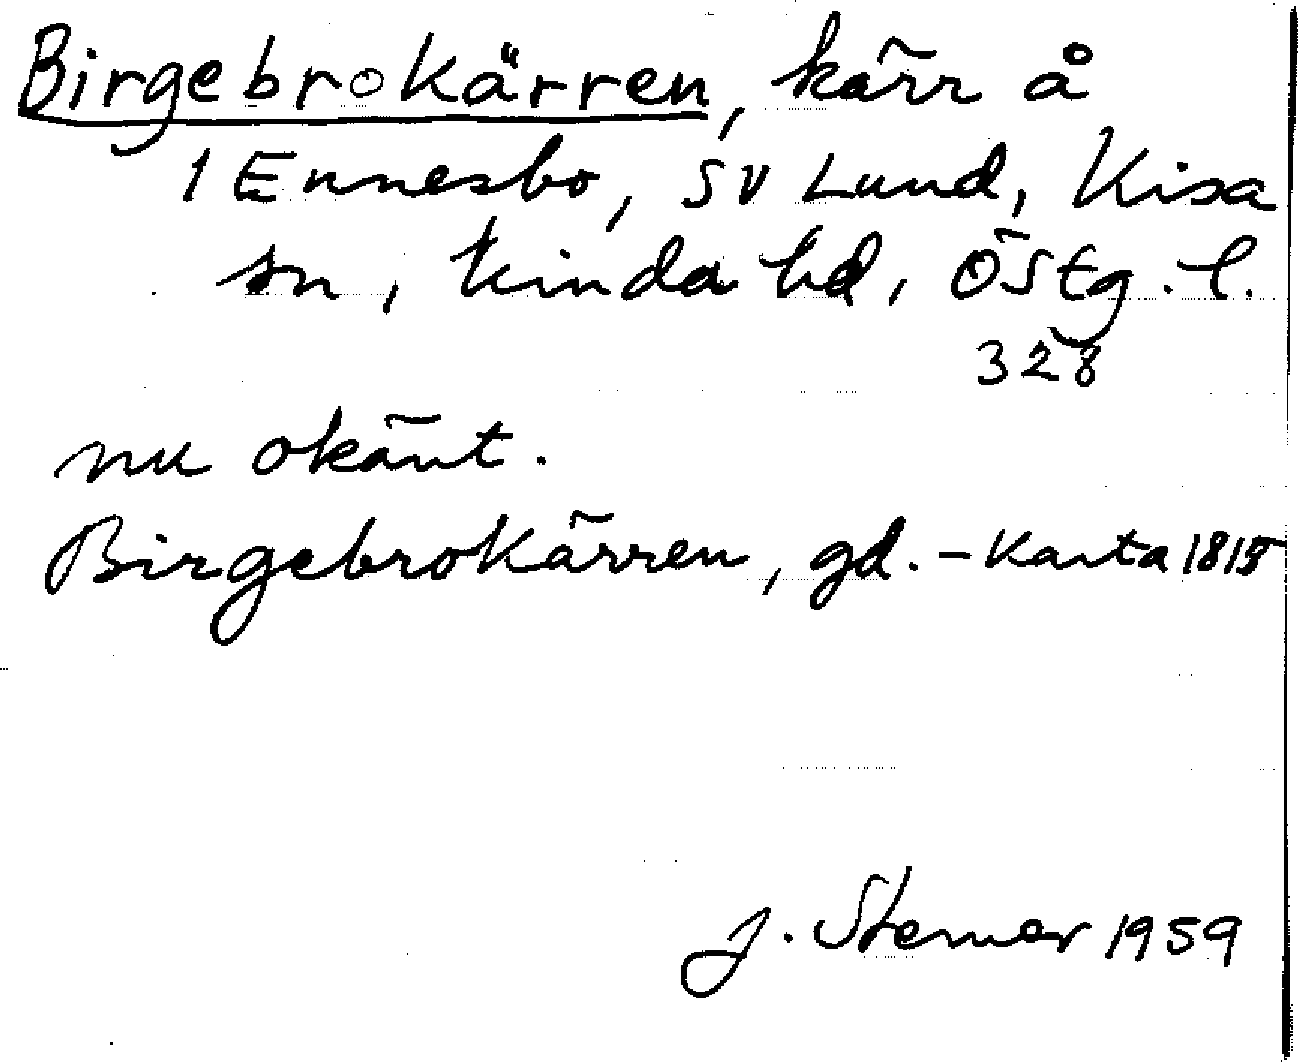 Birgebrokärren, kärr å
1 Ennesbo, SV Lund, Kisa
sn, Kinda hd, Östg. l.
328
nu okänt.
Birgebrokärren, gd. - Karta 1815
J. Sterner 1959